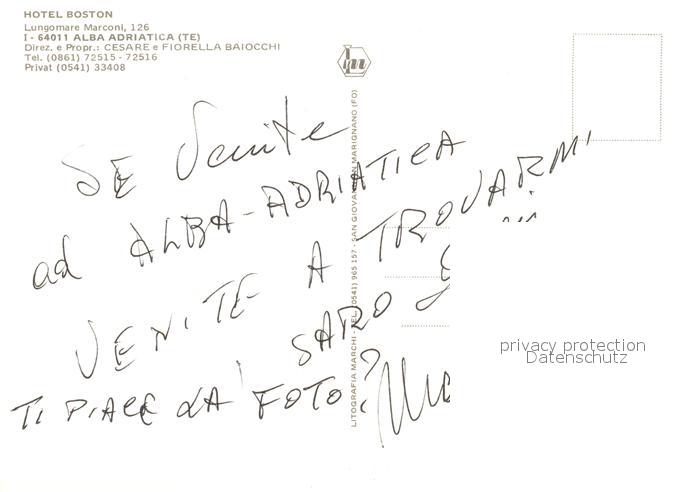 HOTEL BOSTON
Lungomare Marconi, 126
I - 64011 ALBA ADRIATICA (TE)
Direz. e Propr.: CESARE e FIORELLA BAIOCCHI
Tel. (0861) 72515 - 72516
Privat (0541) 33408
LITOGRAFIA MARCHI - TEL. (0541) 965 157 - SAN GIOVANNI IN MARIGNANO (FO)
SE Venite
ad ALBA-ADRIATICA
VENITE A TROVARMI
SARO
TI PIACE LA FOTO?
privacy protection
Datenschutz